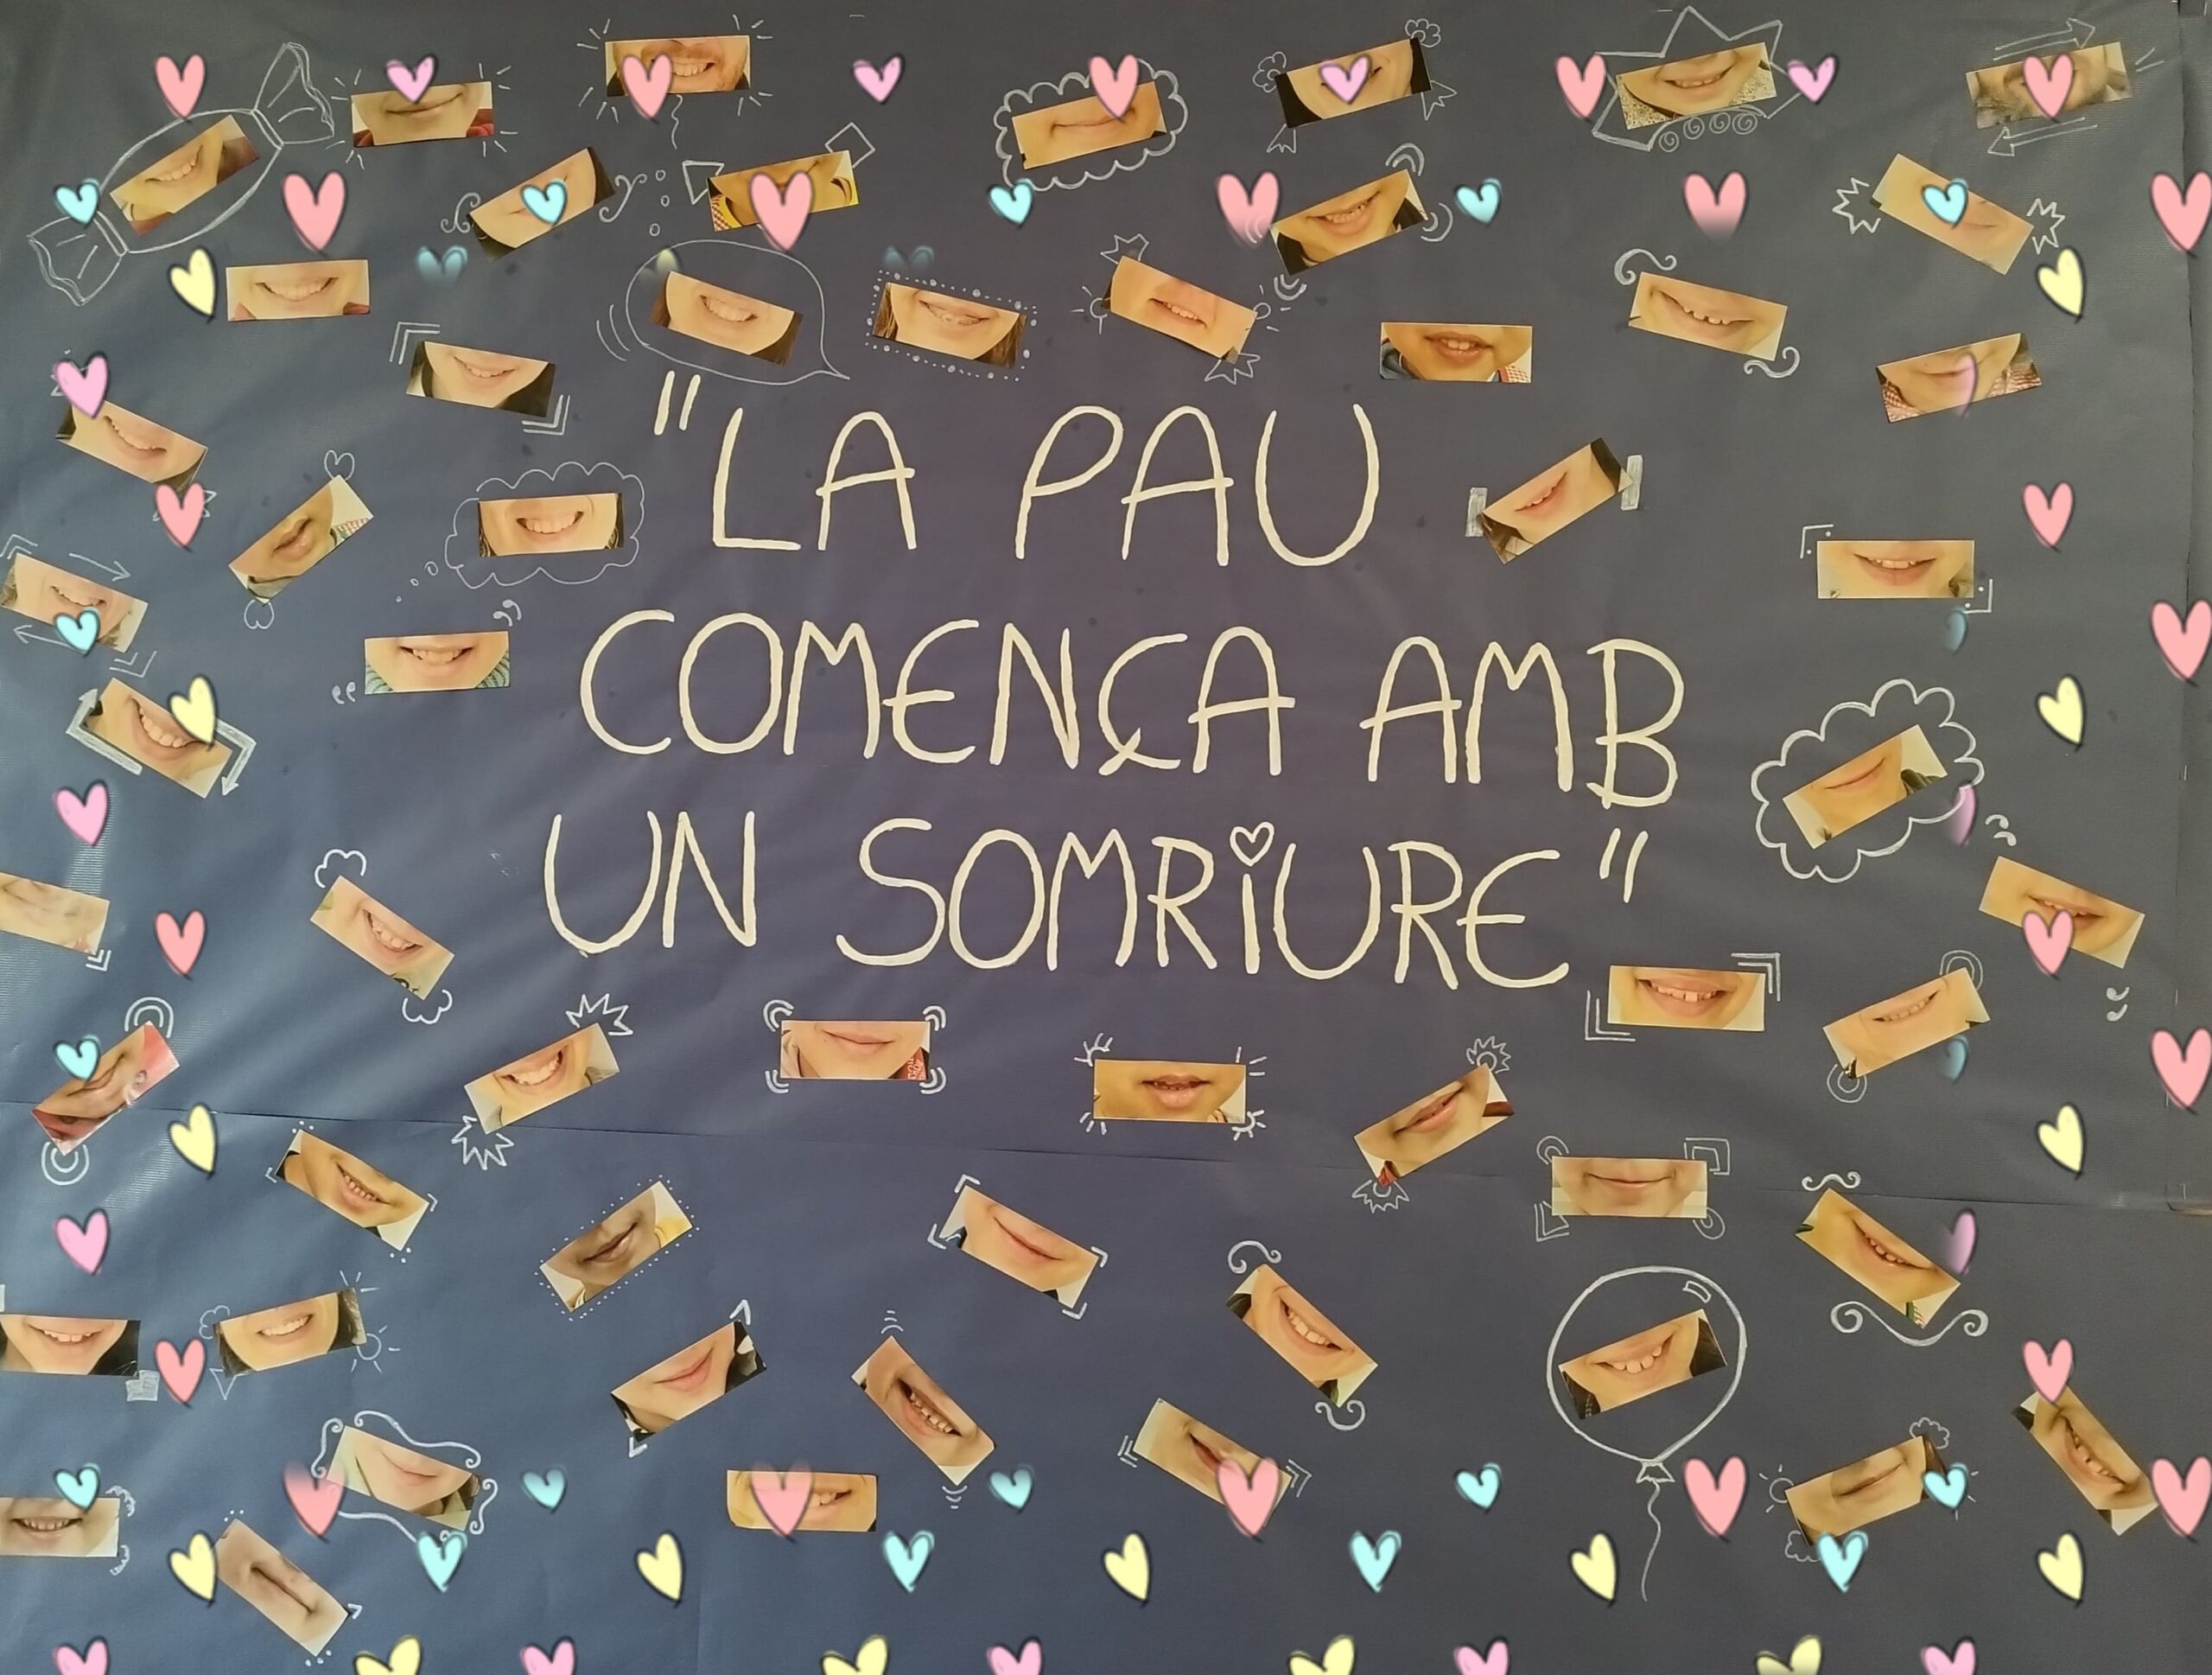 "LA PAU
COMENÇA AMB
UN SOMRiURE"